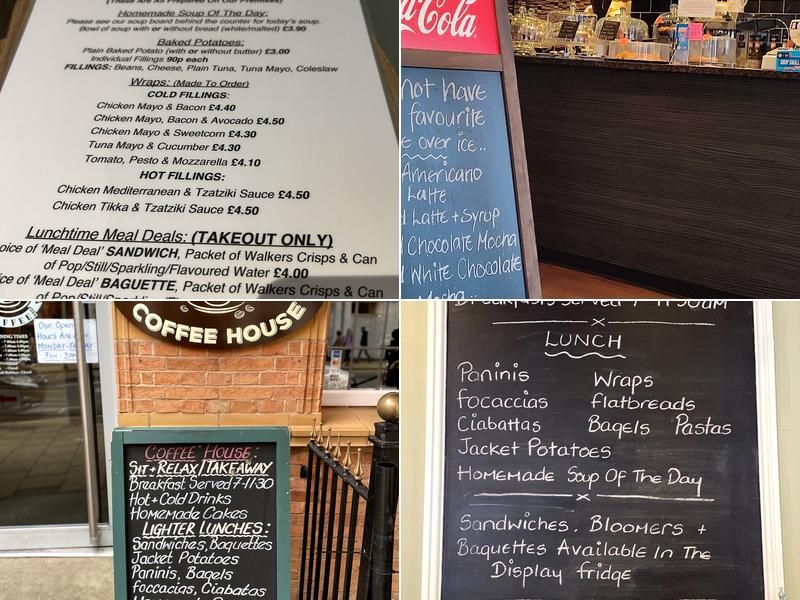 (These Are All Prepared On Our Premises)
Homemade Soup Of The Day:
Please see our soup board behind the counter for today's soup.
Bowl of soup with or without bread (white/malted) £3.90
Baked Potatoes:
Plain Baked Potato (with or without butter) £3.00
Individual Fillings 90p each
FILLINGS: Beans, Cheese, Plain Tuna, Tuna Mayo, Coleslaw
Wraps: (Made To Order)
COLD FILLINGS:
Chicken Mayo & Bacon £4.40
Chicken Mayo, Bacon & Avocado £4.50
Chicken Mayo & Sweetcorn £4.30
Tuna Mayo & Cucumber £4.30
Tomato, Pesto & Mozzarella £4.10
HOT FILLINGS:
Chicken Mediterranean & Tzatziki Sauce £4.50
Chicken Tikka & Tzatziki Sauce £4.50
Lunchtime Meal Deals: (TAKEOUT ONLY)
oice of 'Meal Deal' SANDWICH, Packet of Walkers Crisps & Can
of Pop/Still/Sparkling/Flavoured Water £4.00
ice of 'Meal Deal' BAGUETTE, Packet of Walkers Crisps & Can
of Pop/Still/Sparkling
a-Cola
not have
favourite
e over ice..
Americano
Latte
d Latte + Syrup
Chocolate Mocha
White Chocolate
Mocha
COFFEE HOUSE
Our Open
Hours Are
MONDAY-FRIDAY
7AM - 3PM
COFFEE HOUSE:
SIT + RELAX/TAKEAWAY
Breakfast Served 7-11:30
Hot + Cold Drinks
Homemade Cakes
LIGHTER LUNCHES:
Sandwiches, Baquettes
Jacket Potatoes
Paninis, Bagels
foccacias, Ciabatas
Breakfasts Served 7-11:30am
LUNCH
Paninis Wraps
focaccias flatbreads
Ciabattas Bagels Pastas
Jacket Potatoes
Homemade Soup Of The Day
Sandwiches, Bloomers +
Baquettes Available In The
Display fridge